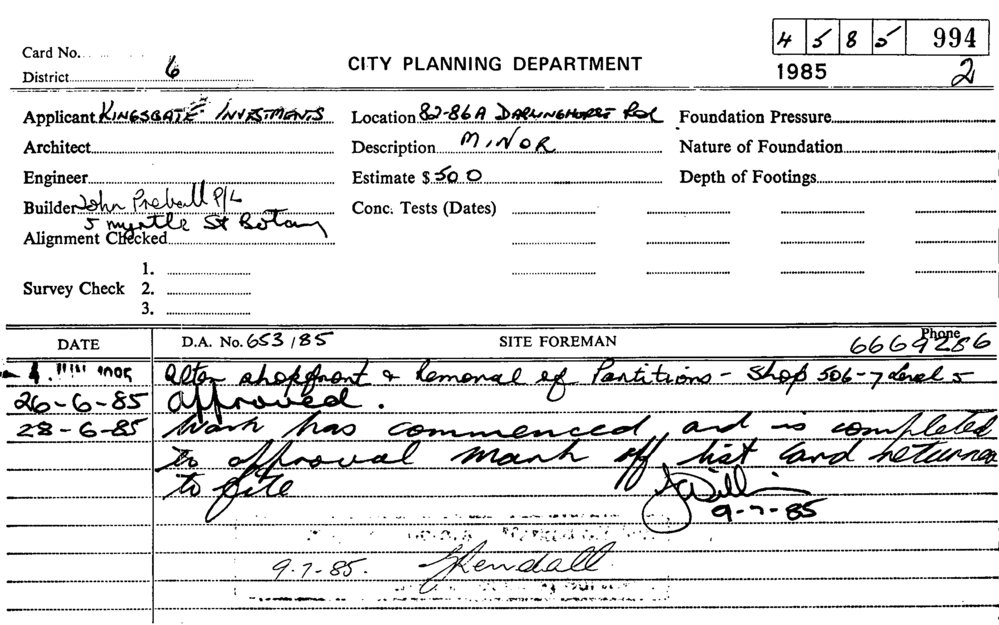 Card No.
4 5 8 5 994
District 6
CITY PLANNING DEPARTMENT
1985 2
Applicant KINGSGATE INVESTMENTS
Location 82-86A DARLINGHURST Rd
Foundation Pressure
Architect
Description MINOR
Nature of Foundation
Engineer
Estimate $ 500
Depth of Footings
Builder John Preball P/L
5 myrtle St Botany
Conc. Tests (Dates)
Alignment Checked
1.
Survey Check 2.
3.
DATE
D.A. No. 653/85
SITE FOREMAN
Phone 6669286
4. 1985 alter shopfront & Removal of Partitions - Shop 506-7 Level 5
26-6-85 approved.
28-6-85 Work has commenced and is completed
to approval mark off list Card returned
to file
9-7-85
9.7-85. Kendall